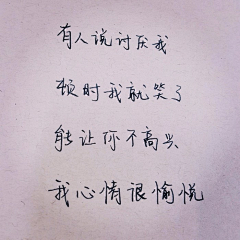 有人说讨厌我
顿时我就笑了
能让你不高兴
我心情很愉悦